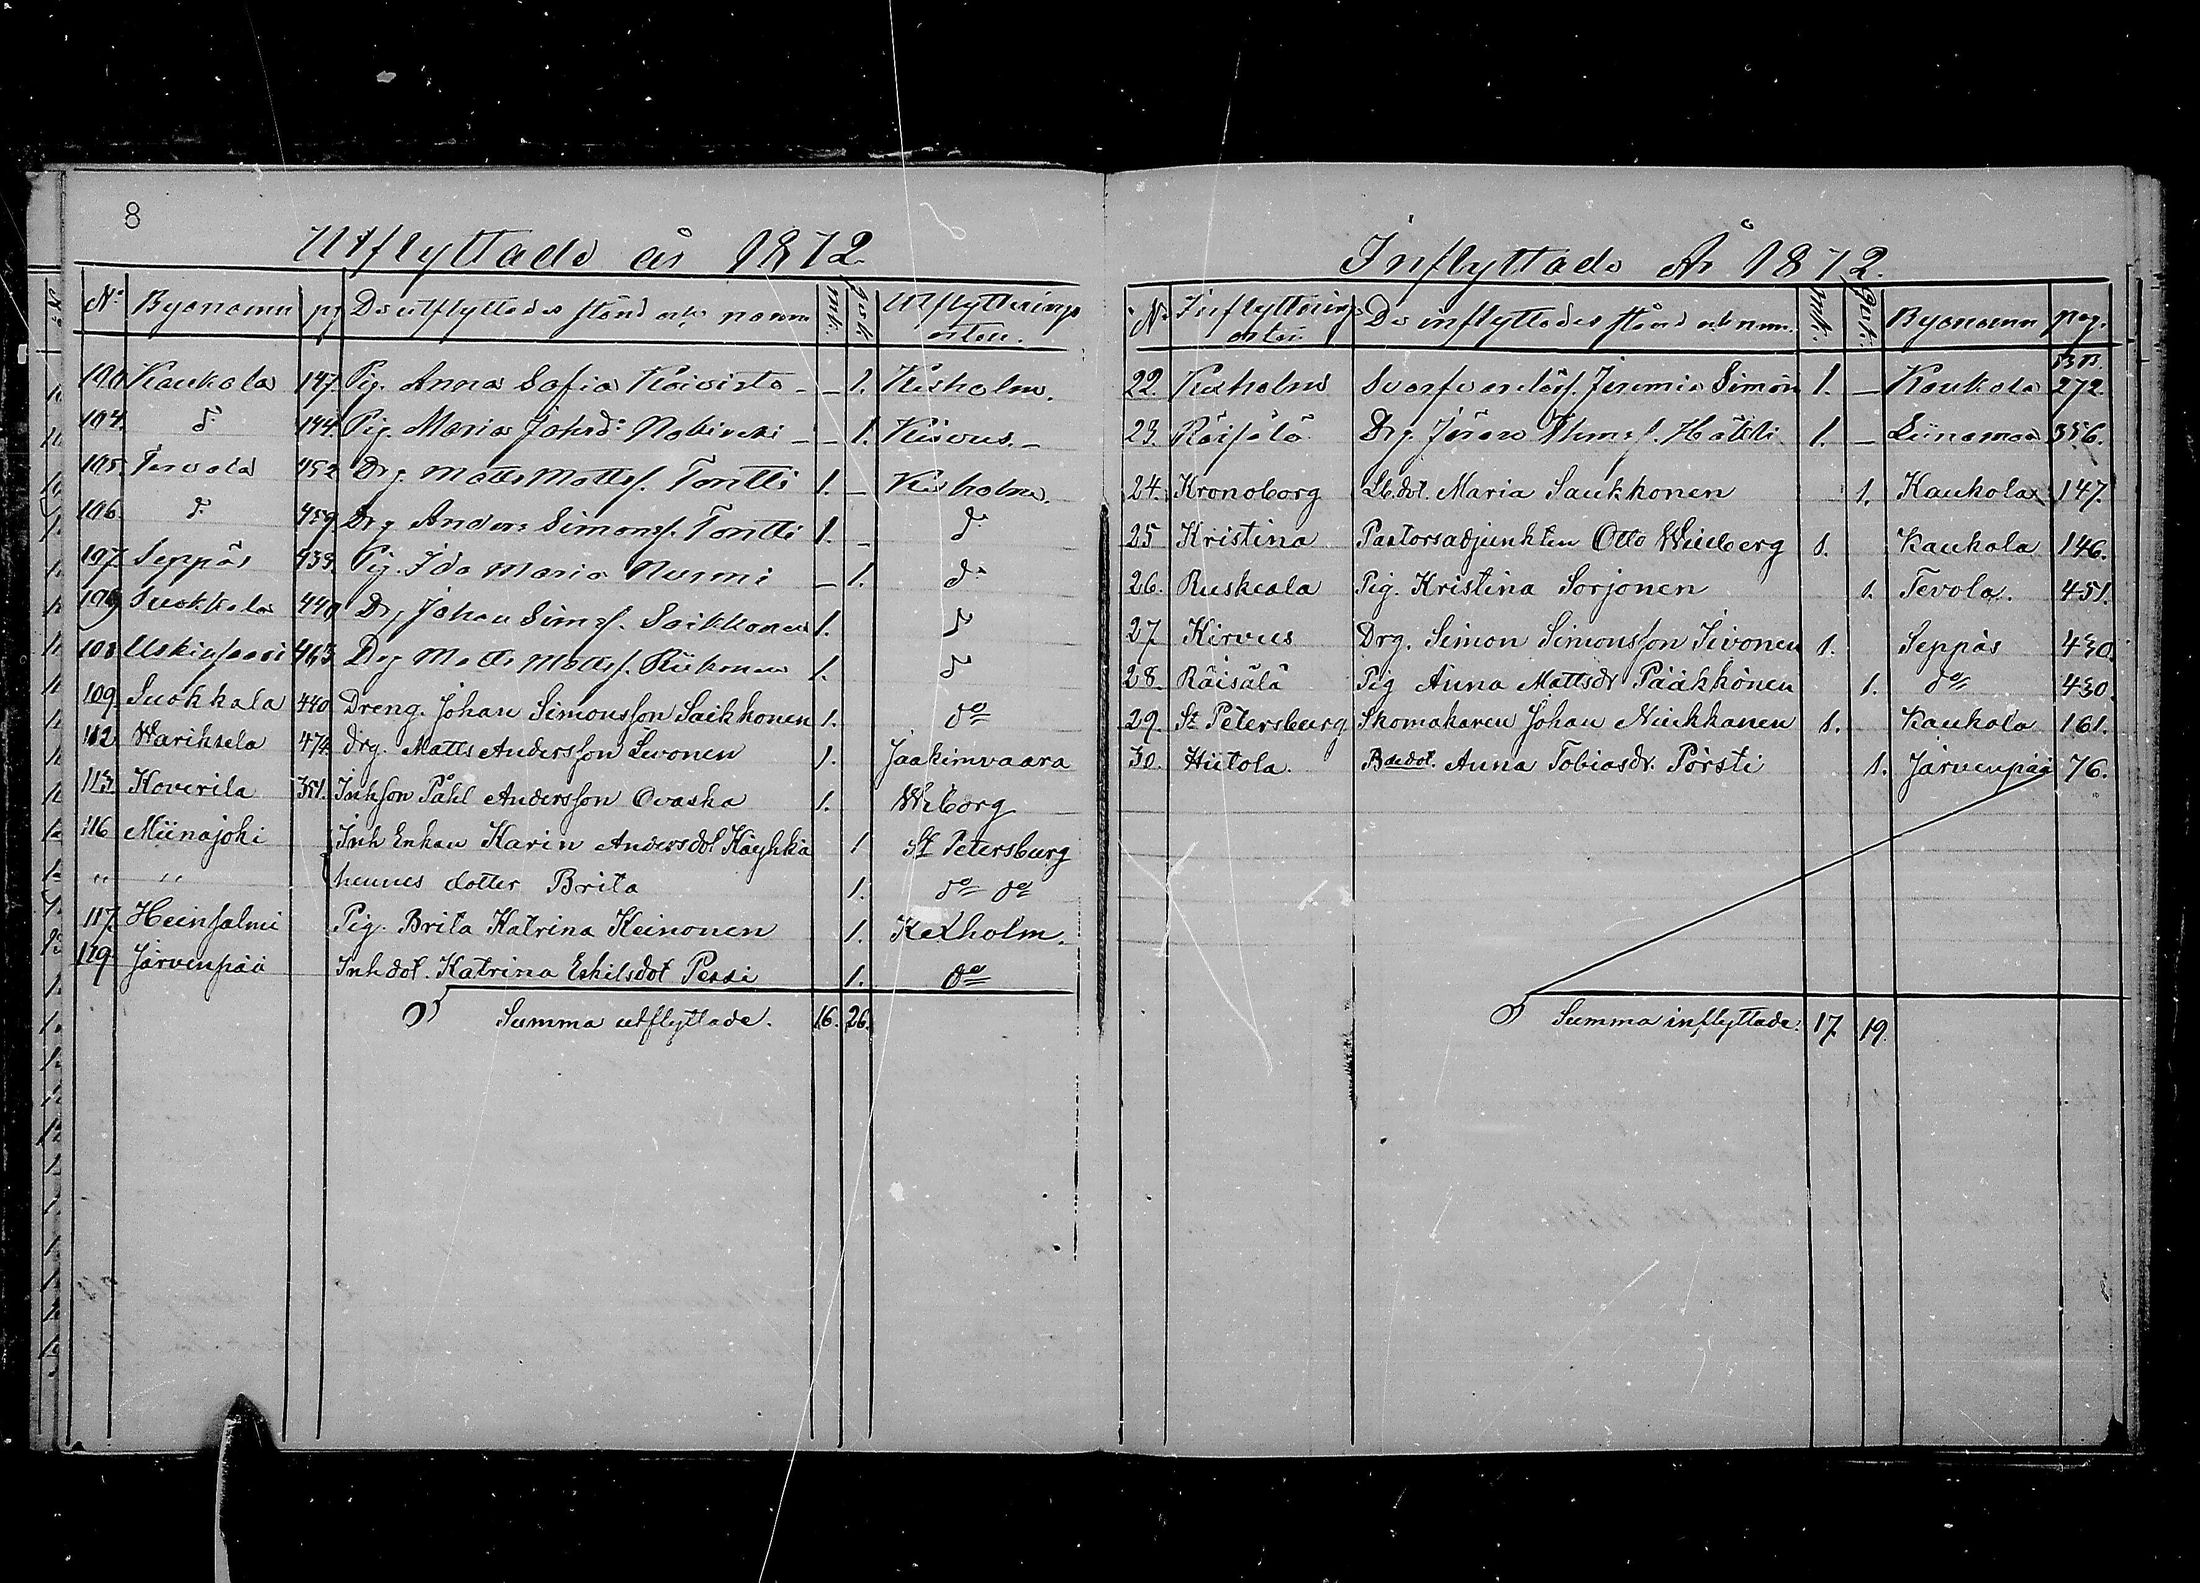 8
Utflyttade år 1872.
No Byanamn pg De utflyttades stånd och namn Mk. Qvk. Utflyttnings orten.
Kaukola 147. Pig. Anna Sofia Koivisto - - 1. Kexholm.
104. do 144. Pig. Maria Johsdr - - 1. Kirvus. -
105. Tervola 452 Drg. Matts Mattss. Tontti 1. - Kexholm.
106. do 459. Drg Anders Simonss. Tontti 1. - do
107. Seppäs 433. Pig. Ida Maria Nurmi - 1. do
Suokkola 440 Drg Johan Simss. Saikkonen 1. do
108 463. Drg Matts Mattss. 1. do
109. Suokkala 440 Dreng. Johan Simonsson Saikkonen 1. do
112. Wariksela 474 Drg. Matts Andersson Levonen 1. Jaakimvaara
113. Koverila 351. Inhson Påhl Andersson Ovaska 1. Wiborg
116 Miinajoki Inh Enkan Karin Andersdot Käyhkö 1 St Petersburg
" " hennes dotter Brita 1. do do
117. Heinsalmi Pig. Brita Katrina Keinonen 1. Kexholm.
119. Järvenpää Inhdot. Katrina Eskilsdot Pessi 1. do
Summa utflyttade. 16. 26.
Inflyttade År 1872.
No Inflyttnings orten. De inflyttades stånd och namn. Mk. Qvk. Byanamn pag.
22. Kexholm Jeremia Simon 1. - Kaukola 272.
23. Räisälä Drg. 1. - Liinamaa 356.
24. Kronoborg Lb.dot. Maria Saukkonen 1. Kaukola 147.
25 Kristina Pastorsadjunkten Otto Winberg 1. Kaukola 146.
26. Ruskeala Pig. Kristina Sorjonen 1. Tevola. 451.
27 Kirvus Drg. Simon Simonsson Sivonen 1. Seppäs 430.
28. Räisälä Pig Anna Mattsdr Pääkkönen 1. do 430.
29. St Petersburg Skomakaren Johan Niukkanen 1. Kaukola 161.
30. Hiitola. Bdedot. Anna Tobiasdr. Pörsti 1. Järvenpää 76.
Summa inflyttade: 17 19.